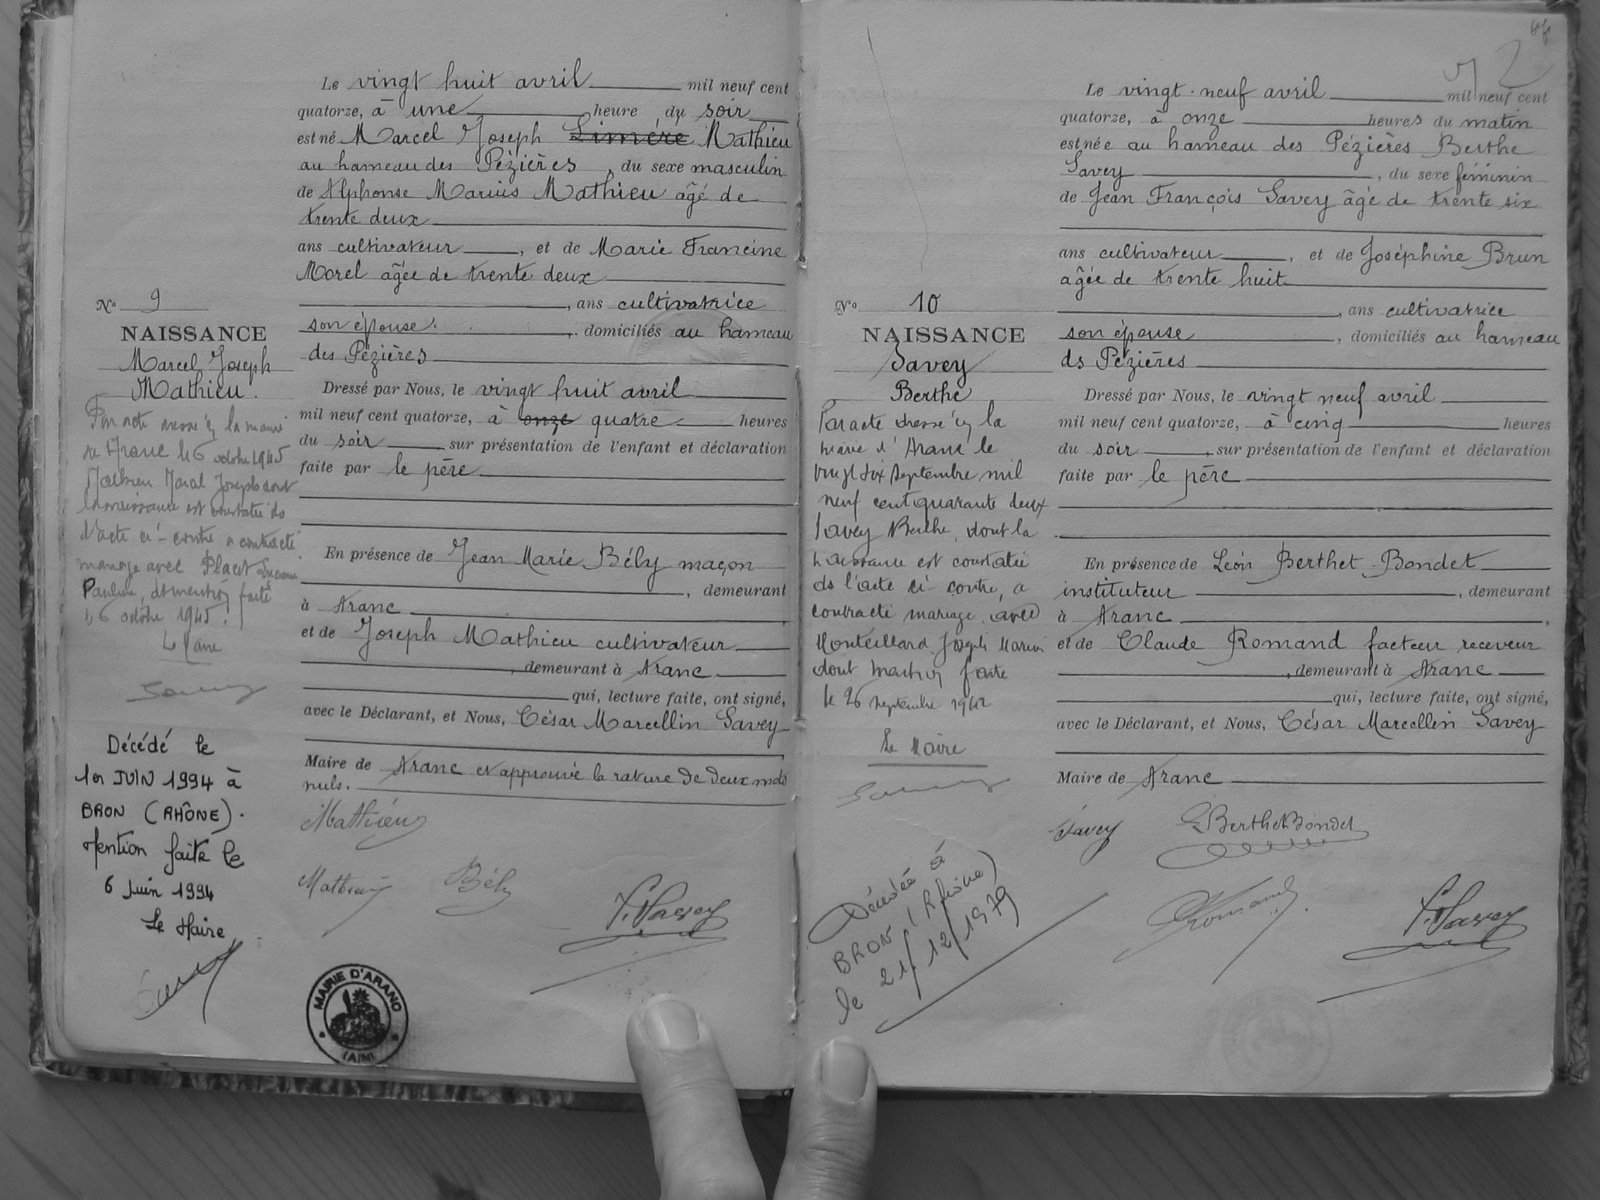 Le vingt huit avril mil neuf cent
quatorze, à une heure du soir
est né Marcel Joseph Limère Mathieu
au hameau des Pézières, du sexe masculin
de Alphonse Marius Mathieu âgé de
trente deux
ans cultivateur, et de Marie Francine
Morel âgée de trente deux
, ans cultivatrice
son épouse. domiciliés au hameau
des Pézières
Dressé par Nous, le vingt huit avril
mil neuf cent quatorze, à onze quatre heures
du soir sur présentation de l'enfant et déclaration
faite par le père
En présence de Jean Marie Bély maçon
, demeurant
à Aranc
et de Joseph Mathieu cultivateur
, demeurant à Aranc
qui, lecture faite, ont signé,
avec le Déclarant, et Nous, César Marcellin Savey
Maire de Aranc et approuvé la rature de deux mots
nuls.
Mathieu
Mathieu Bély
Savey
N° 9
NAISSANCE
Marcel Joseph
Mathieu.
Par acte dressé en la mairie
de Aranc le 6 octobre 1945
Mathieu Marcel Joseph dont
la naissance est constatée ds
l'acte ci-contre a contracté
mariage avec Placet
Pauline, dt mention faite
le 6 octobre 1945.
Le Maire
Décédé le
1er JUIN 1994 à
BRON (RHÔNE).
Mention faite le
6 Juin 1994
Le Maire
MAIRIE D'ARANC
(AIN)
Le vingt-neuf avril mil neuf cent
quatorze, à onze heures du matin
est née au hameau des Pézières Berthe
Savey, du sexe féminin
de Jean François Savey âgé de trente six
ans cultivateur, et de Joséphine Brun
âgée de trente huit
, ans cultivatrice
son épouse, domiciliés au hameau
ds Pézières
Dressé par Nous, le vingt neuf avril
mil neuf cent quatorze, à cinq heures
du soir, sur présentation de l'enfant et déclaration
faite par le père
En présence de Léon Berthet-Bondet
instituteur, demeurant
à Aranc
et de Claude Romand facteur receveur
, demeurant à Aranc
qui, lecture faite, ont signé,
avec le Déclarant, et Nous, César Marcellin Savey
Maire de Aranc
Savey Berthet Bondet
Romand Savey
N° 10
NAISSANCE
Savey
Berthe
Par acte dressé en la
mairie d'Aranc le
vingt six septembre mil
neuf cent quarante deux
Savey Berthe, dont la
naissance est constatée
ds l'acte ci-contre, a
contracté mariage avec
Monteillard Joseph Marius
dont mention faite
le 26 septembre 1942
Le Maire
Décédée à
BRON (Rhône)
le 21/12/1979